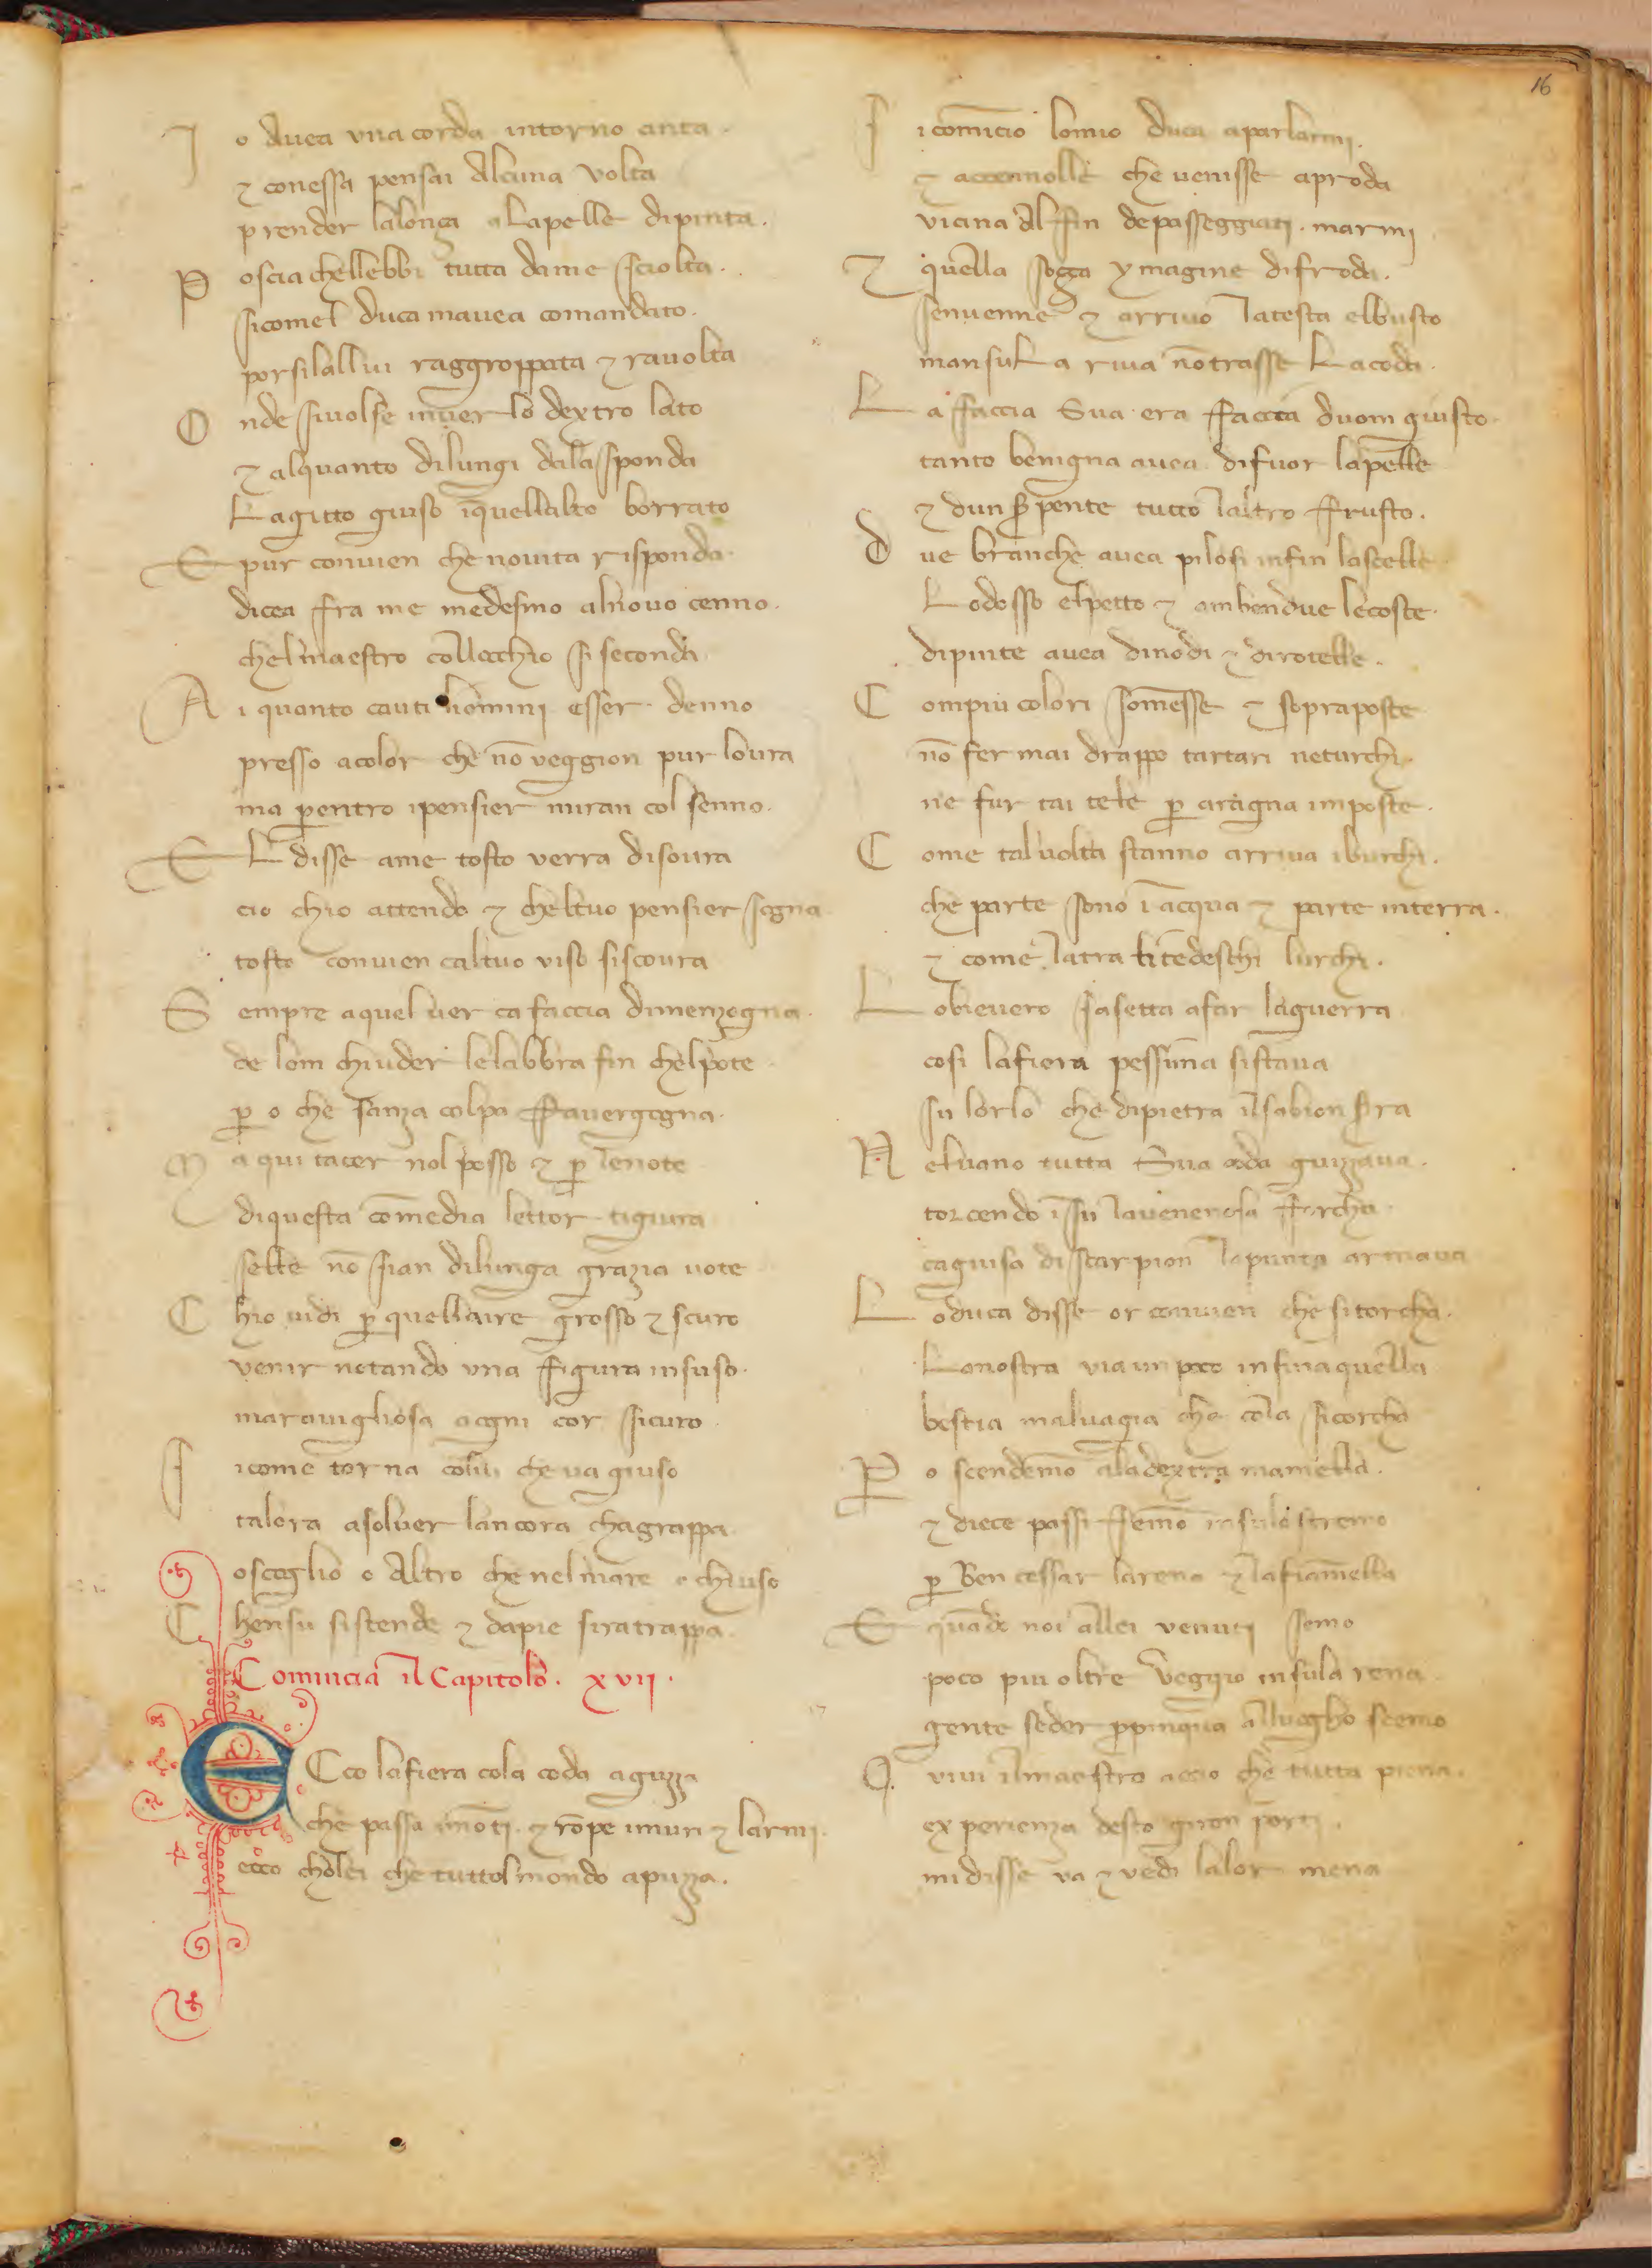 16
Io avea vna corda intorno cinta.
⁊ conessa pensai alcuna volta
prender lalonza alapelle dipinta.
Poscia chellebbi tutta dame sciolta.
sicomel duca mauea comandato.
porsilallui raggroppata ⁊ rauolta
Onde siuolse inuer lo dextro lato
⁊ alquanto dilungi dala sponda
Lagitto giuso īquellalto borrato
E pur conuien che nouita risponda.
dicea fra me medesmo alnouo cenno.
chelmaestro collocchio si seconda
Ai quanto cauti homini esser denno
presso acolor che nō veggion pur loura
ma ꝑentro ipensier miran col senno.
El disse ame tosto verra disoura
cio chio attendo ⁊ cheltuo pensier sogna
tosto conuien caltuo viso siscoura
Sempre aquel uer ca faccia dimenzogna.
de lom chiuder lelabbra fin chelpote
ꝑo che sanza colpa fauergogna.
Ma qui tacer nol posso ⁊ ꝑ lenote
diquesta comēdia lettor tigiura
selle nō sian dilunga grazia uote
Chio uidi ꝑ quellaire grosso ⁊ scuro
venir notando vna figura insuso.
marauigliosa aogni cor sicuro.
Sicome torna colui che ua giuso
talora asoluer lancora chagrappa
oscoglio o altro che nelmare e chiuso
Chensu sistende ⁊ dapie siratrappa.
Comincia il Capitolo. xvij.
ECco lafiera cola coda aguzza
che passa imōti. ⁊ rōpe imuri ⁊ larmi.
ecco cholei che tuttol mondo apuzza.
Si comīcio lomio duca aparlarmi.
⁊ accennolle che uenisse aproda
vicina al fin depasseggiati. marmi
⁊ quella soza ymagine difroda.
senuenne ⁊ arriuo latesta elbusto
mansula riua nōtrasse Lacoda.
La faccia sua era faccia duom giusto.
tanto benigna auea difuor lapelle
⁊ dun sꝑpente tutto laltro frusto.
Due branche auea pilosi infin lascelle
Lodosso elpetto ⁊ ambendue lecoste.
dipinte auea dinodi ⁊ dirotelle.
Compiu colori somesse ⁊ sopraposte
nō fer mai drappo tartari neturchi.
ne fur tai tele ꝑ aragna imposte.
Come taluolta stanno arriua iburchi.
che parte sono ī acqua ⁊ parte interra.
⁊ come latra li tedeschi lurchi.
Lobieuero sasetta afar laguerra
cosi lafiera pessima sistaua
su lorlo che dipietra ilsabion serra
Neluano tutta sua coda guizzaua.
torcendo ī su lauenenosa forcha
caguisa di scarpion lapunta armaua
Loduca disse or conuien che sitorcha.
Lanostra via un poco infinaquella
bestia maluagia che cola sicorcha
Po scendemo aladextra mamella.
⁊ diece passi femo insulo stremo
ꝑ Ben cessar larena ⁊ lafiāmella
E quādo noi allei venuti semo
poco piu oltre veggio insula rena
gente seder ꝓpinqua alluogho scemo
Qviui ilmaestro accio che tutta piena.
experienza desto giron porti.
midisse va ⁊ vedi lalor mena